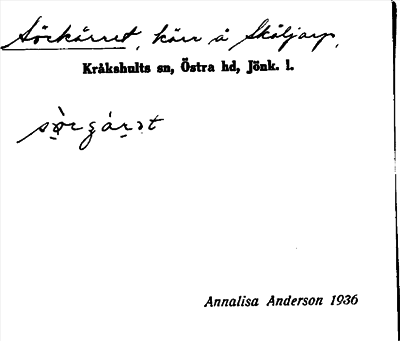 Sörkärret, kärr å Skäljarp,
Kråkshults sn, Östra hd, Jönk. l.
Annalisa Anderson 1936